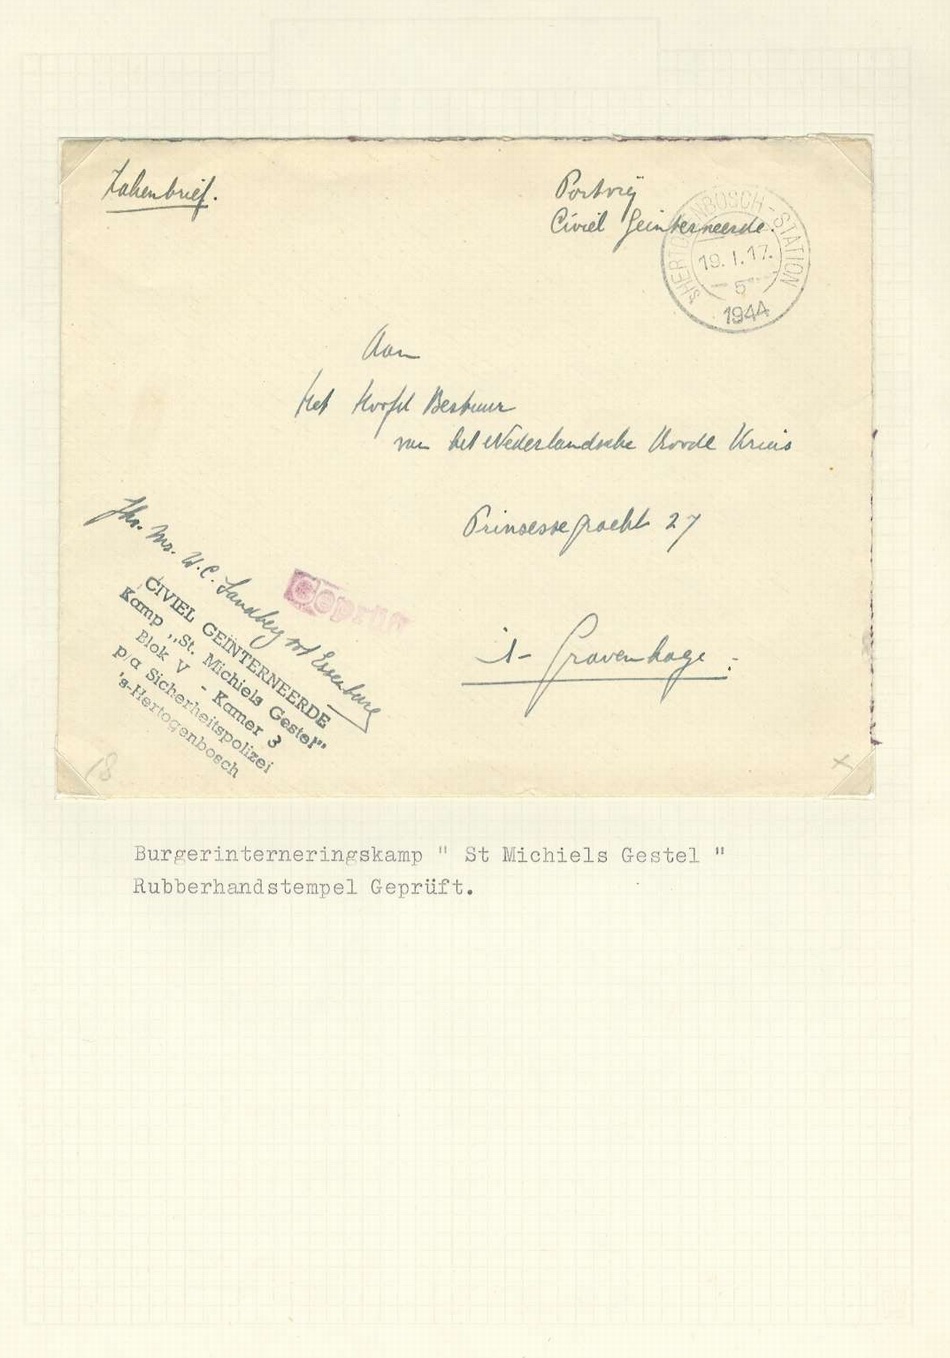 Zakenbrief.
Portvrij
Civiel Geinterneerde.
SHERTOGENBOSCH-STATION
19.I.17.
5
1944
Aan
Het Hoofd Bestuur
van het Nederlandsche Roode Kruis
Prinsessegracht 27
's-Gravenhage:
Jhr. Mr. W.C. Sandberg tot Essenburg
Geprüft
CIVIEL GEÏNTERNEERDE
Kamp „St. Michiels Gestel"
Blok V - Kamer 3
p/a Sicherheitspolizei
's-Hertogenbosch
18
x
Burgerinterneringskamp " St Michiels Gestel "
Rubberhandstempel Geprüft.